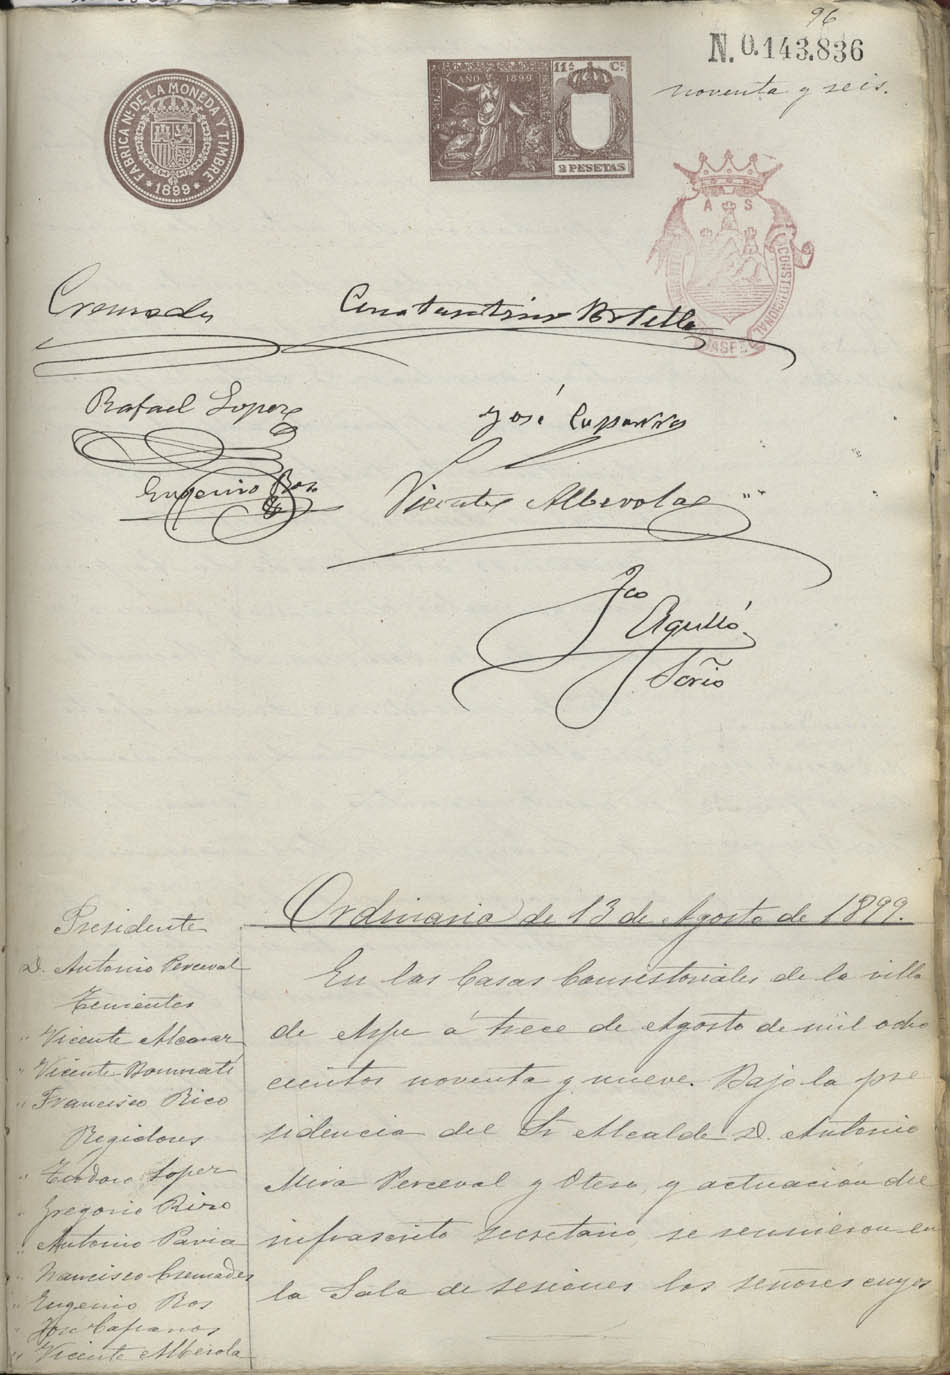 96
N. 0.143.836
noventa y seis.
FABRICA Nal. DE LA MONEDA Y TIMBRE
* 1899 *
AÑO 1899
11ª Cª
2 PESETAS
A S
CONSTITUCIONAL
ASPE
Cremades
Constantino Botella
Rafael Lopez
José Caparros
Eugenio Bos
Vicente Alberola
Fco
Agulló
Sorio
Ordinaria de 13 de Agosto de 1899.
Presidente
D. Antonio Perceval
Tenientes
" Vicente Alcaraz
" Vicente Bonmati
" Francisco Rico
Regidores
" Teodoro Lopez
" Gregorio Rizo
" Antonio Pavia
" Francisco Cremades
" Eugenio Bos
" José Caparros
" Vicente Alberola
En las Casas Consistoriales de la villa
de Aspe á trece de Agosto de mil ocho
cientos noventa y nueve. Bajo la pre
sidencia del Sr Alcalde D. Antonio
Mira Perceval y Otero, y actuación del
infrascrito Secretario, se reunieron en
la Sala de sesiones los señores cuyos